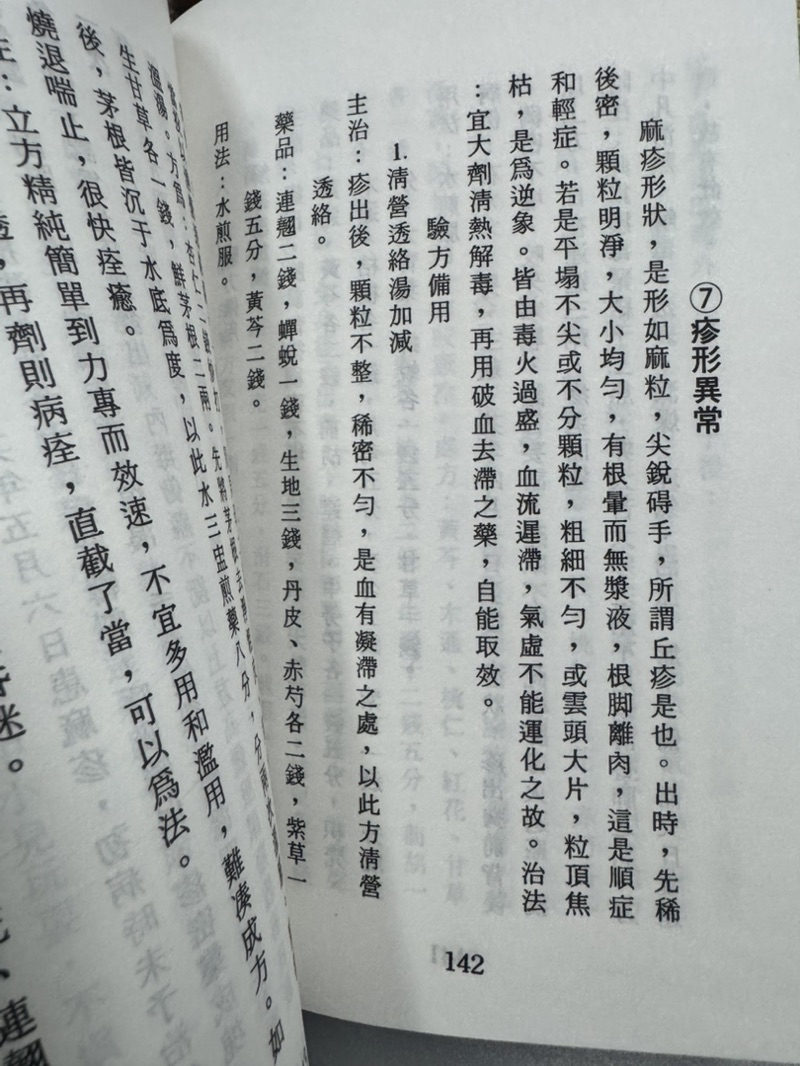 ⑦疹形異常
麻疹形狀，是形如麻粒，尖銳碍手，所謂丘疹是也。出時，先稀
後密，顆粒明淨，大小均勻，有根暈而無漿液，根脚離肉，這是順症
和輕症。若是平塌不尖或不分顆粒，粗細不勻，或雲頭大片，粒頂焦
枯，是爲逆象。皆由毒火過盛，血流遲滯，氣虛不能運化之故。治法
：宜大劑清熱解毒，再用破血去滯之藥，自能取效。
驗方備用
1.淸營透絡湯加減
主治：疹出後，顆粒不整，稀密不勻，是血有凝滯之處，以此方淸營
透絡。
藥品：連翹二錢，蟬蛻一錢，生地三錢，丹皮、赤芍各二錢，紫草一
錢五分，黃芩二錢。
用法：水煎服。
142
生甘草各一錢，鮮茅根二兩。先將茅根
後，茅根皆沉于水底爲度，以此水三盅煎藥八分，
燒退喘止，很快痊癒。
立方精純簡單到力專而效速，不宜多用和濫用，難湊成方。如
再劑則病痊，直截了當，可以爲法。
連翹